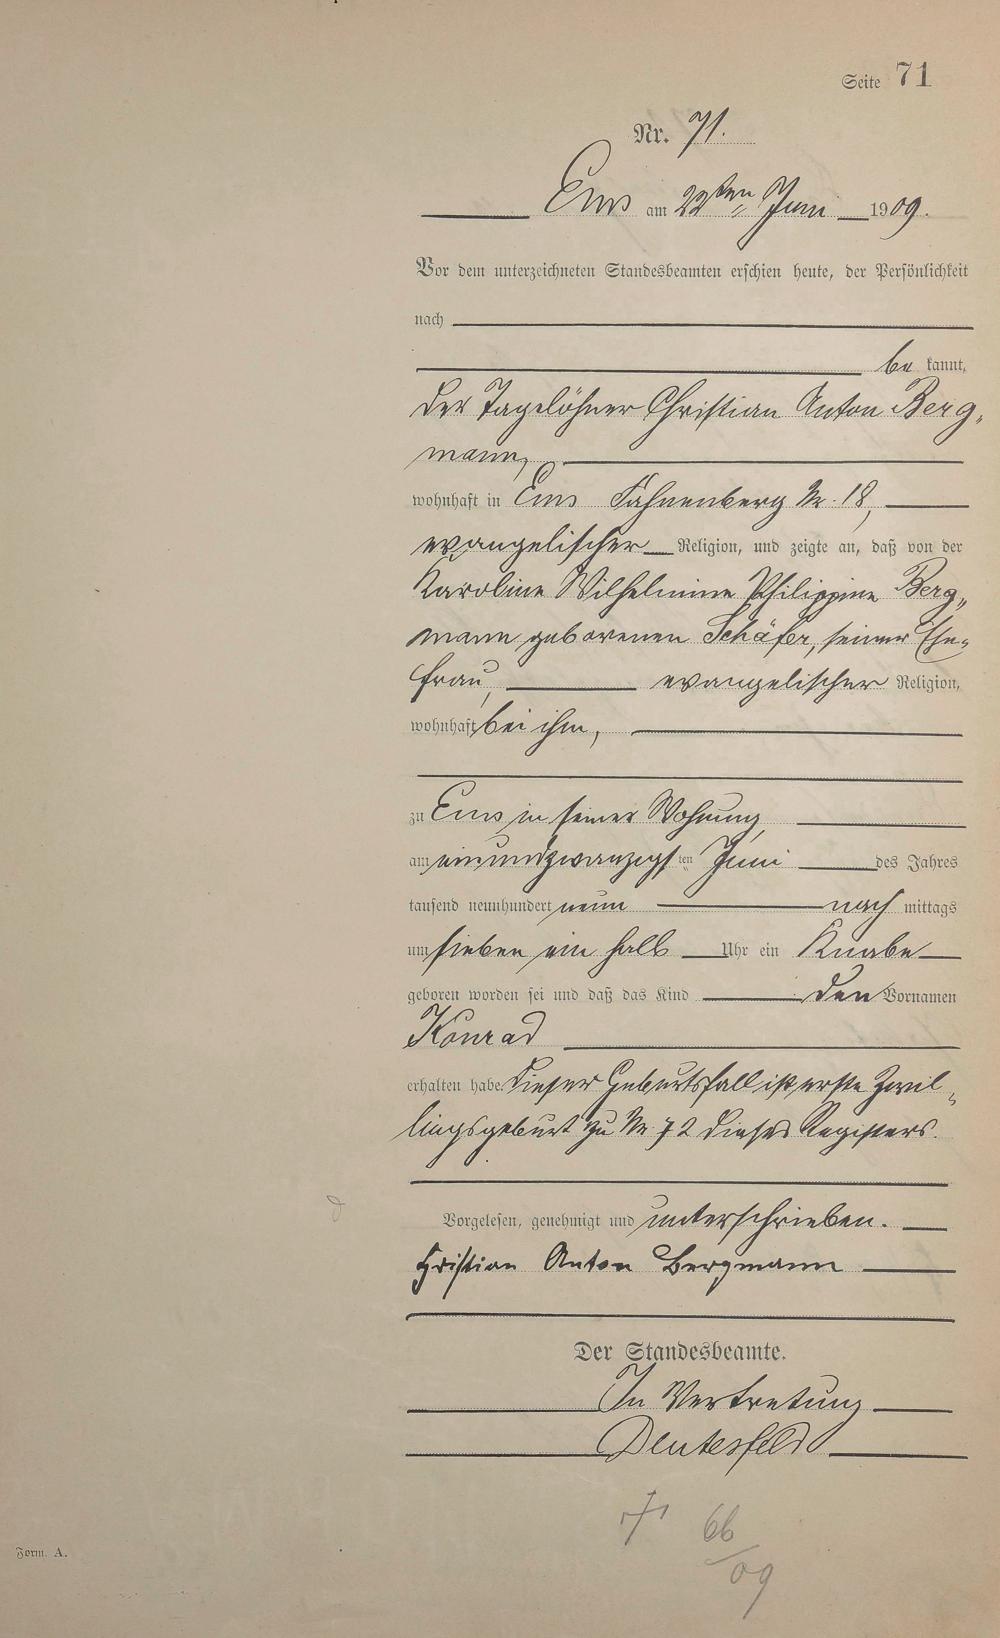 Seite 71
Nr. 71.
Ems am 22ten Juni 1909.
Vor dem unterzeichneten Standesbeamten erschien heute, der Persönlichkeit
nach
be kannt,
der Tagelöhner Christian Anton Berg-
mann,
wohnhaft in Ems Fahnenberg Nr. 18,
evangelischer Religion, und zeigte an, daß von der
Karoline Wilhelmine Philippine Berg-
mann geborenen Schäfer, seiner Ehe-
frau, evangelischer Religion,
wohnhaft bei ihm,
zu Ems in seiner Wohnung,
am einundzwanzigsten Juni des Jahres
tausend neunhundert neun nach mittags
um sieben ein halb Uhr ein Knabe
geboren worden sei und daß das Kind den Vornamen
Konrad
erhalten habe. Dieser Geburtsfall ist erste Zwil-
lingsgeburt zu Nr. 72 dieses Registers.
Vorgelesen, genehmigt und unterschrieben.
Christian Anton Bergmann
Der Standesbeamte.
In Vertretung
† 66
/09
Form. A.